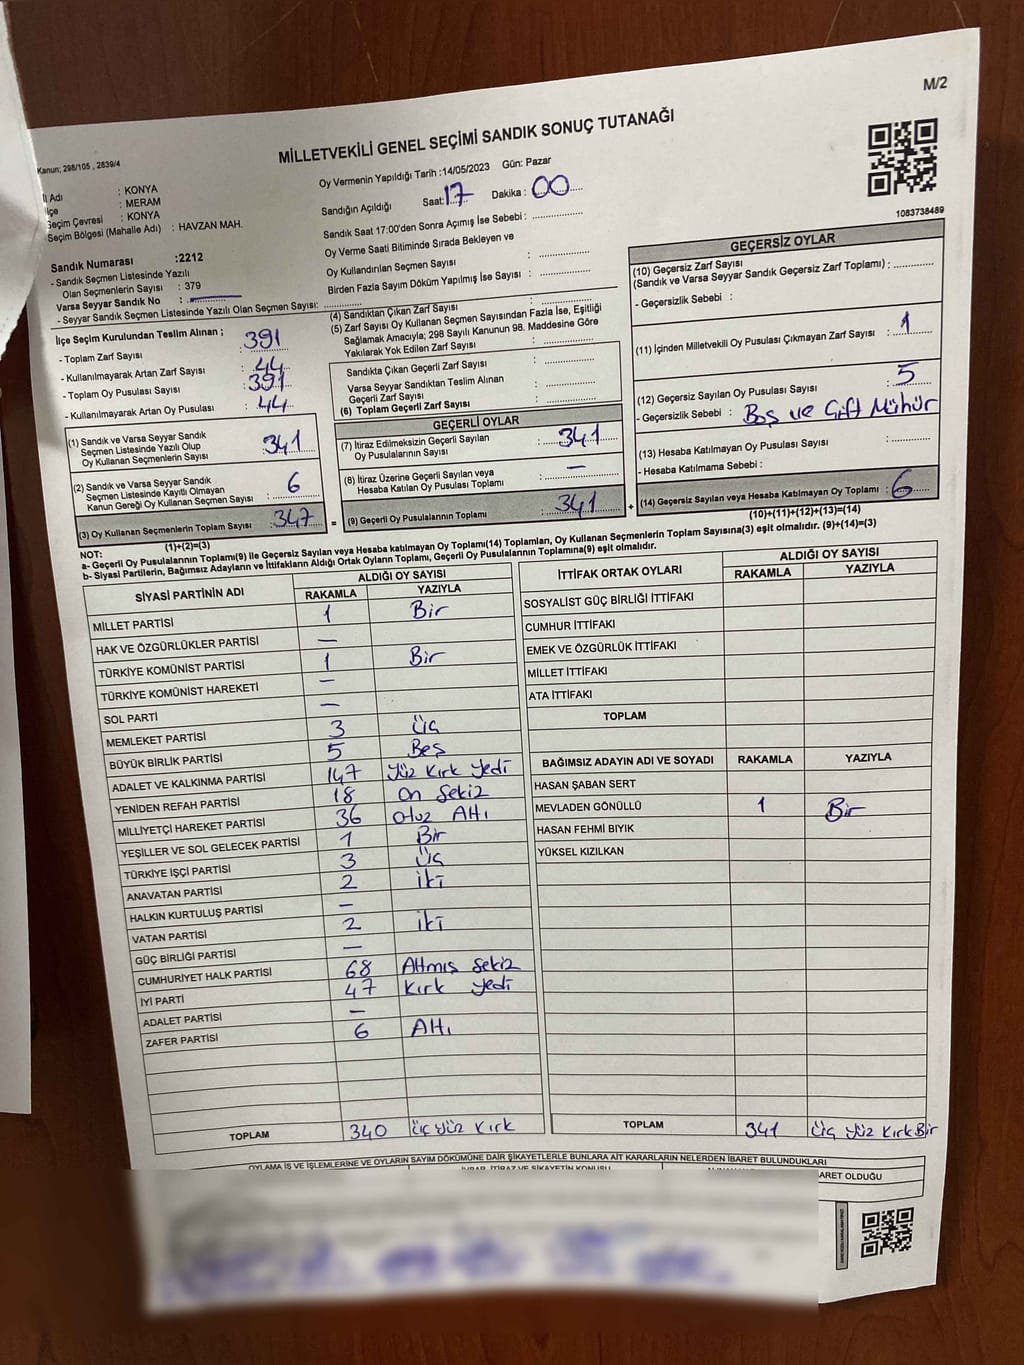 M/2
MİLLETVEKİLİ GENEL SEÇİMİ SANDIK SONUÇ TUTANAĞI
Kanun; 298/105 , 2839/4
Oy Vermenin Yapıldığı Tarih :14/05/2023 Gün: Pazar
İl Adı : KONYA
İlçe : MERAM
Seçim Çevresi : KONYA
Seçim Bölgesi (Mahalle Adı) : HAVZAN MAH.
Sandığın Açıldığı Saat: 17 Dakika : 00
Sandık Saat 17:00'den Sonra Açımış İse Sebebi :
Oy Verme Saati Bitiminde Sırada Bekleyen ve
Oy Kullandırılan Seçmen Sayısı :
Birden Fazla Sayım Döküm Yapılmış İse Sayısı :
1083738489
Sandık Numarası :2212
- Sandık Seçmen Listesinde Yazılı
Olan Seçmenlerin Sayısı : 379
Varsa Seyyar Sandık No :
- Seyyar Sandık Seçmen Listesinde Yazılı Olan Seçmen Sayısı:
İlçe Seçim Kurulundan Teslim Alınan ;
- Toplam Zarf Sayısı : 391
- Kullanılmayarak Artan Zarf Sayısı : 44
- Toplam Oy Pusulası Sayısı : 391
- Kullanılmayarak Artan Oy Pusulası : 44
(1) Sandık ve Varsa Seyyar Sandık
Seçmen Listesinde Yazılı Olup
Oy Kullanan Seçmenlerin Sayısı : 341
(2) Sandık ve Varsa Seyyar Sandık
Seçmen Listesinde Kayıtlı Olmayan
Kanun Gereği Oy Kullanan Seçmen Sayısı : 6
(3) Oy Kullanan Seçmenlerin Toplam Sayısı : 347
(1)+(2)=(3)
(4) Sandıktan Çıkan Zarf Sayısı :
(5) Zarf Sayısı Oy Kullanan Seçmen Sayısından Fazla İse, Eşitliği
Sağlamak Amacıyla; 298 Sayılı Kanunun 98. Maddesine Göre
Yakılarak Yok Edilen Zarf Sayısı :
Sandıkta Çıkan Geçerli Zarf Sayısı :
Varsa Seyyar Sandıktan Teslim Alınan
Geçerli Zarf Sayısı :
(6) Toplam Geçerli Zarf Sayısı :
GEÇERLİ OYLAR
(7) İtiraz Edilmeksizin Geçerli Sayılan
Oy Pusulalarının Sayısı : 341
(8) İtiraz Üzerine Geçerli Sayılan veya
Hesaba Katılan Oy Pusulası Toplamı : —
=
(9) Geçerli Oy Pusulalarının Toplamı : 341
+
GEÇERSİZ OYLAR
(10) Geçersiz Zarf Sayısı
(Sandık ve Varsa Seyyar Sandık Geçersiz Zarf Toplamı) :
- Geçersizlik Sebebi :
(11) İçinden Milletvekili Oy Pusulası Çıkmayan Zarf Sayısı : 1
(12) Geçersiz Sayılan Oy Pusulası Sayısı : 5
- Geçersizlik Sebebi : Boş ve Çift Mühür
(13) Hesaba Katılmayan Oy Pusulası Sayısı :
- Hesaba Katılmama Sebebi :
(14) Geçersiz Sayılan veya Hesaba Katılmayan Oy Toplamı : 6
(10)+(11)+(12)+(13)=(14)
NOT:
a- Geçerli Oy Pusulalarının Toplamı(9) ile Geçersiz Sayılan veya Hesaba katılmayan Oy Toplamı(14) Toplamları, Oy Kullanan Seçmenlerin Toplam Sayısına(3) eşit olmalıdır. (9)+(14)=(3)
b- Siyasi Partilerin, Bağımsız Adayların ve İttifakların Aldığı Ortak Oyların Toplamı, Geçerli Oy Pusulalarının Toplamına(9) eşit olmalıdır.
SİYASİ PARTİNİN ADI ALDIĞI OY SAYISI
RAKAMLA YAZIYLA
MİLLET PARTİSİ 1 Bir
HAK VE ÖZGÜRLÜKLER PARTİSİ —
TÜRKİYE KOMÜNİST PARTİSİ 1 Bir
TÜRKİYE KOMÜNİST HAREKETİ —
SOL PARTİ —
MEMLEKET PARTİSİ 3 Üç
BÜYÜK BİRLİK PARTİSİ 5 Beş
ADALET VE KALKINMA PARTİSİ 147 Yüz Kırk Yedi
YENİDEN REFAH PARTİSİ 18 On Sekiz
MİLLİYETÇİ HAREKET PARTİSİ 36 Otuz Altı
YEŞİLLER VE SOL GELECEK PARTİSİ 1 Bir
TÜRKİYE İŞÇİ PARTİSİ 3 Üç
ANAVATAN PARTİSİ 2 İki
HALKIN KURTULUŞ PARTİSİ —
VATAN PARTİSİ 2 İki
GÜÇ BİRLİĞİ PARTİSİ —
CUMHURİYET HALK PARTİSİ 68 Altmış Sekiz
İYİ PARTİ 47 Kırk Yedi
ADALET PARTİSİ —
ZAFER PARTİSİ 6 Altı
TOPLAM 340 Üç Yüz Kırk
İTTİFAK ORTAK OYLARI ALDIĞI OY SAYISI
RAKAMLA YAZIYLA
SOSYALİST GÜÇ BİRLİĞİ İTTİFAKI
CUMHUR İTTİFAKI
EMEK VE ÖZGÜRLÜK İTTİFAKI
MİLLET İTTİFAKI
ATA İTTİFAKI
TOPLAM
BAĞIMSIZ ADAYIN ADI VE SOYADI RAKAMLA YAZIYLA
HASAN ŞABAN SERT
MEVLADEN GÖNÜLLÜ 1 Bir
HASAN FEHMİ BIYIK
YÜKSEL KIZILKAN
TOPLAM 341 Üç Yüz Kırk Bir
OYLAMA İŞ VE İŞLEMLERİNE VE OYLARIN SAYIM DÖKÜMÜNE DAİR ŞİKAYETLERLE BUNLARA AİT KARARLARIN NELERDEN İBARET BULUNDUKLARI
İHBAR, İTİRAZ VE ŞİKAYETİN KONUSU
BARET OLDUĞU